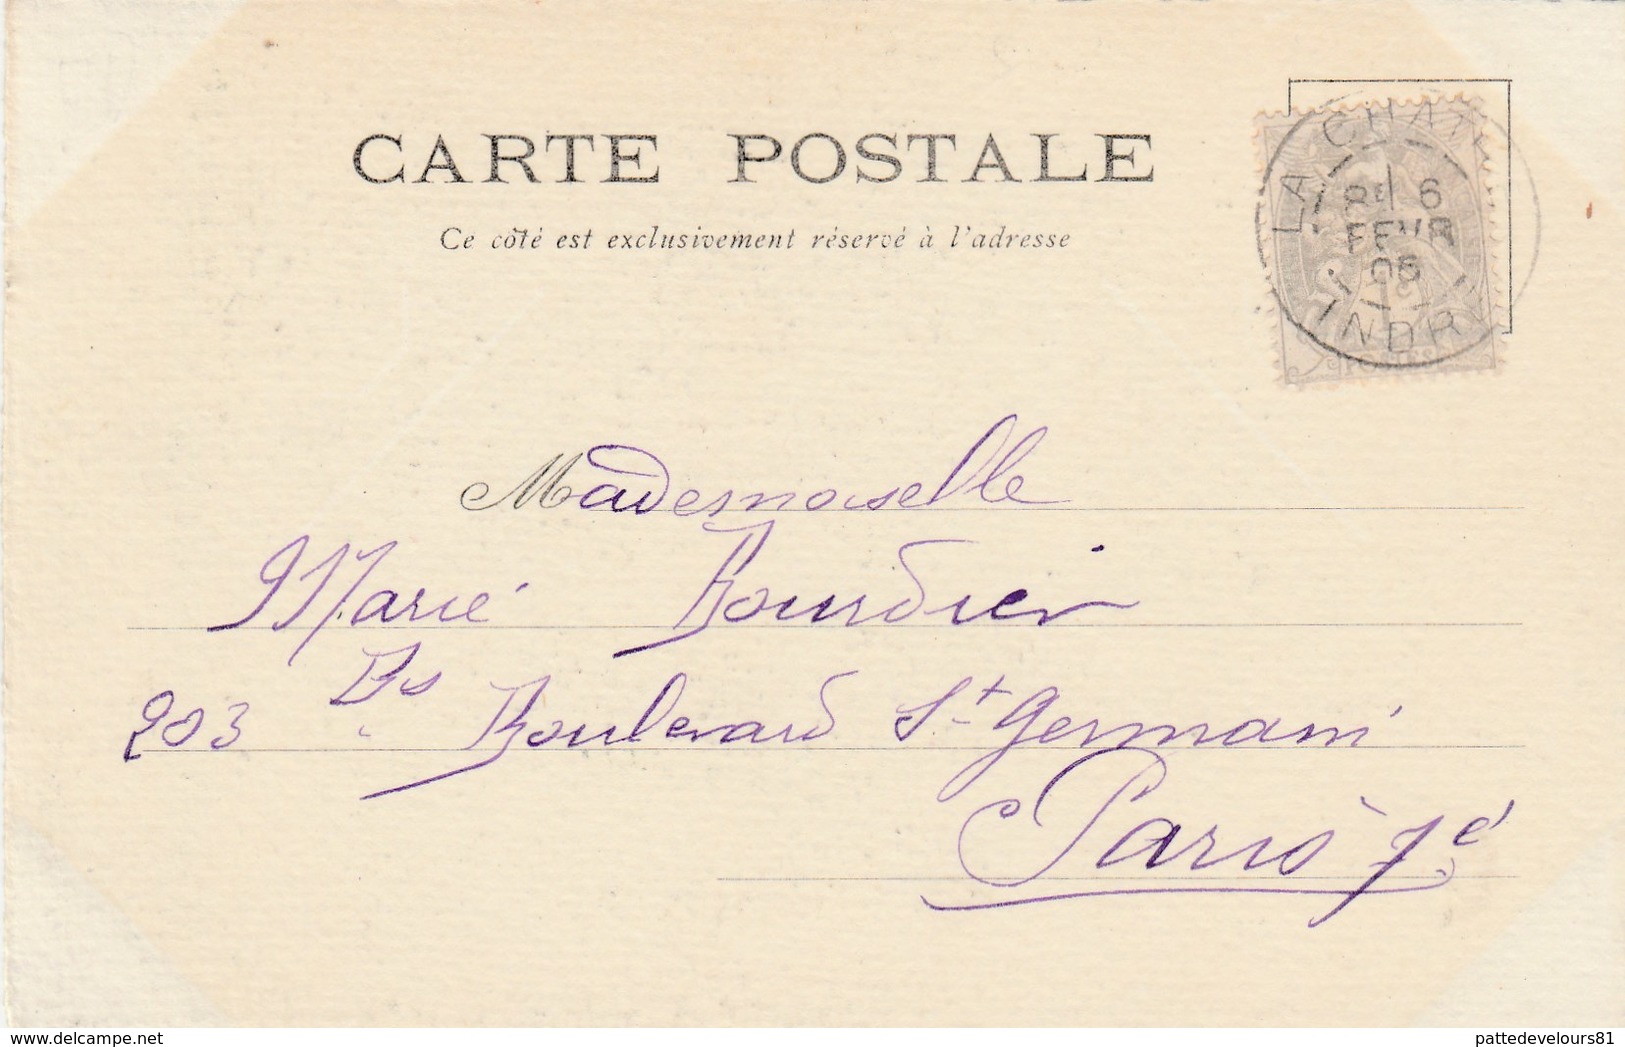 CARTE POSTALE
Ce côté est exclusivement réservé à l'adresse
LA CHAT
6
FEVR
05
INDRE
POSTES
Mademoiselle
Marie Bourdier
203 Bis Boulevard St Germain
Paris 7e
www.delcampe.net
pattedevelours81